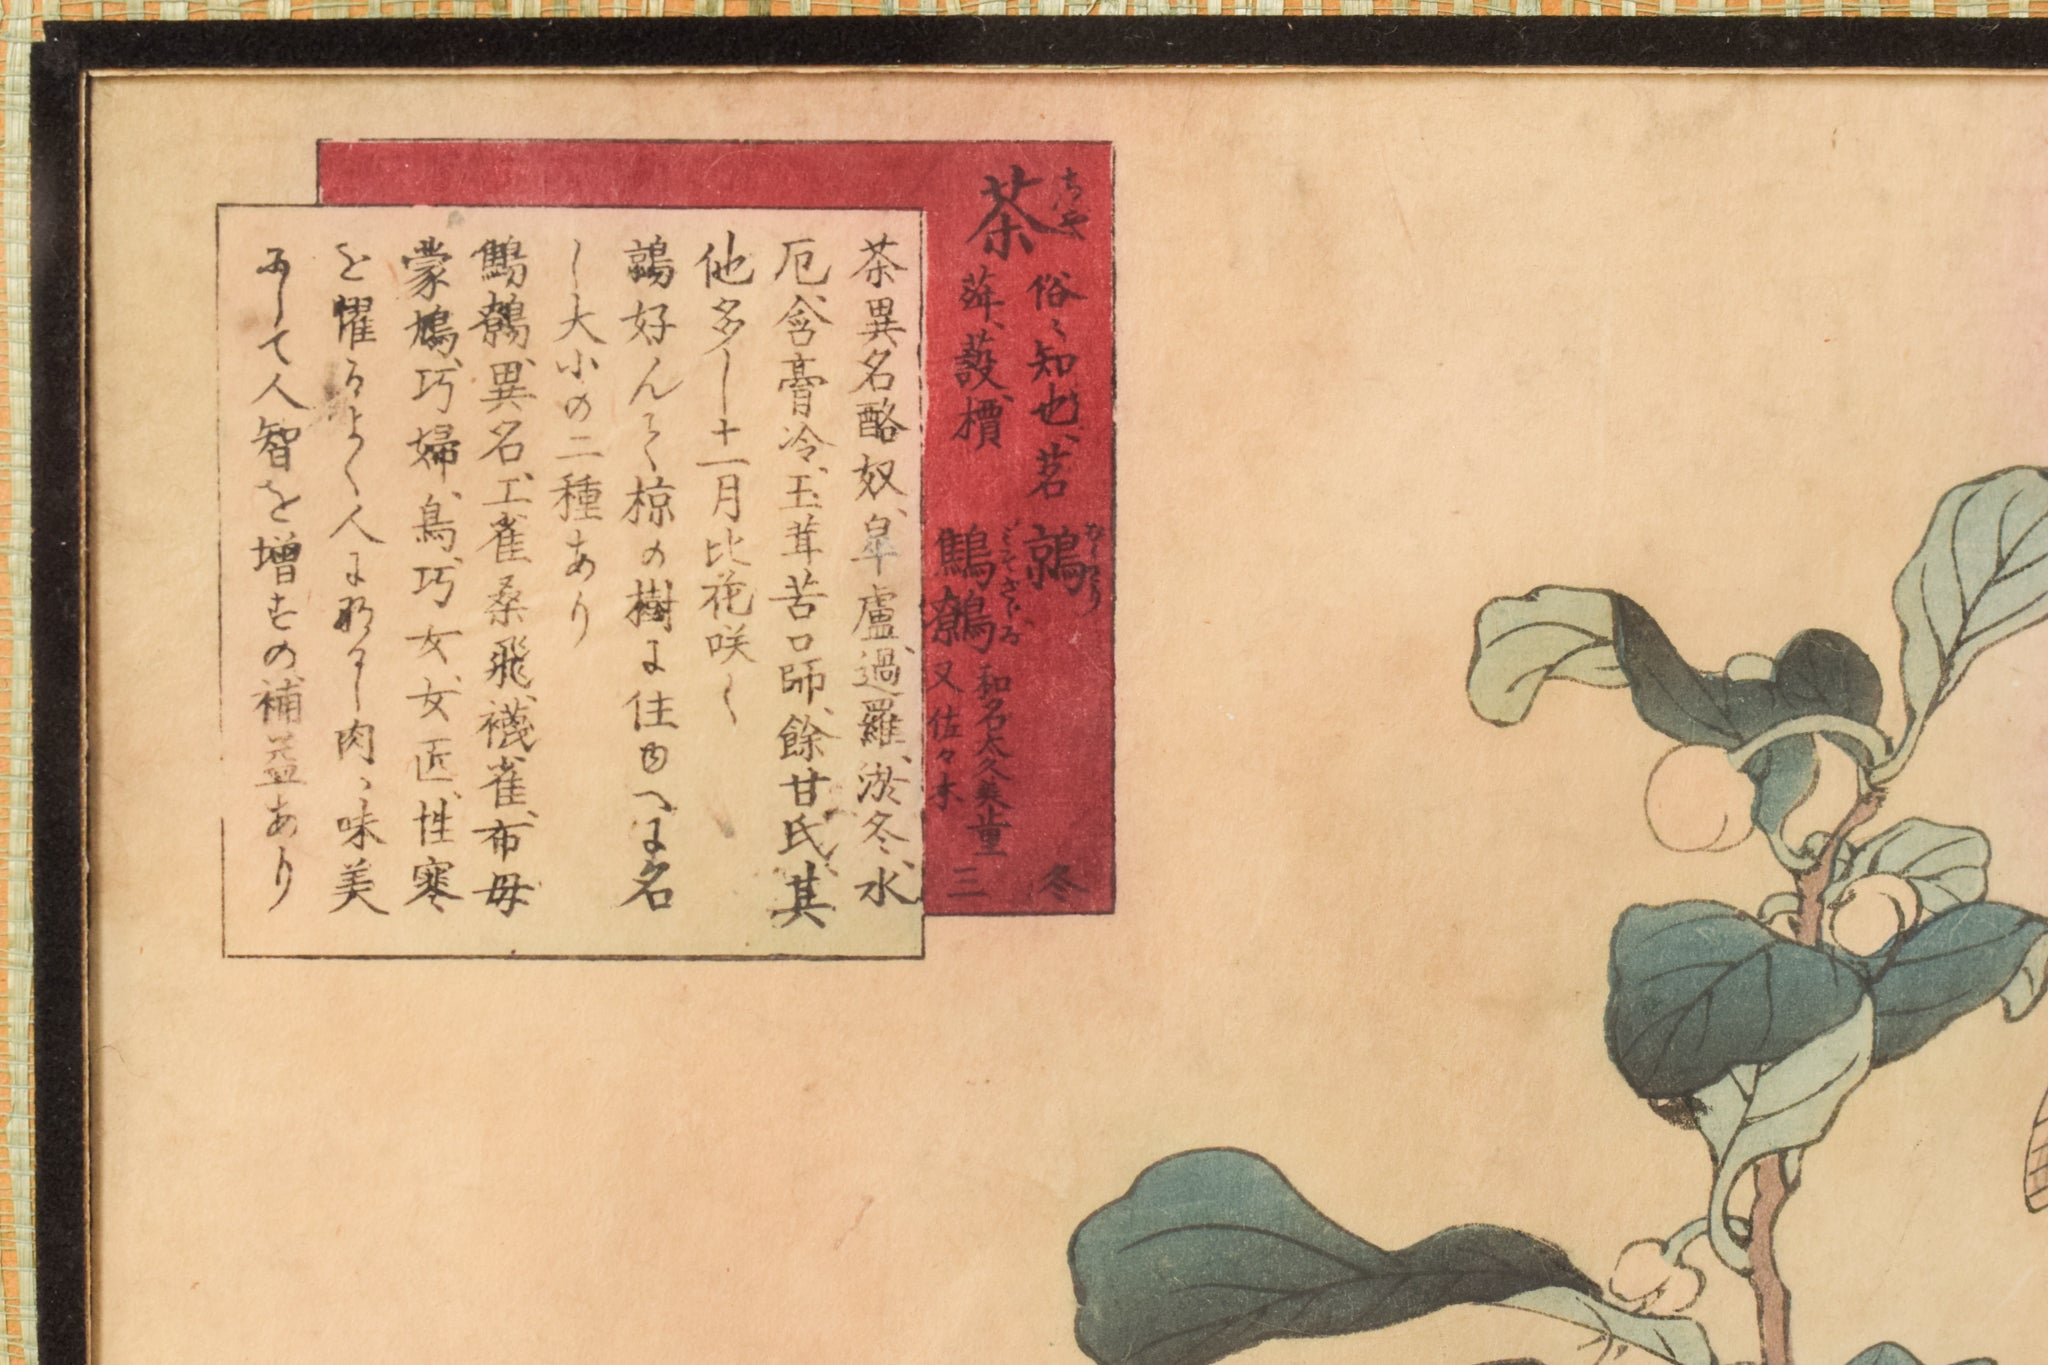 茶 ちや
俗ニ知也、茗
荈、蔎、檟
鶉
鷦鷯
和名太久美
又佐々木
冬
三
茶異名酪奴、皐盧、過羅、游冬、水
厄、含膏冷、玉茸苦口師、餘甘氏、其
他多し十一月比花咲く
鶉好んで椋の樹に住由へに名
し大小の二種あり
鷦鷯、異名、工雀桑飛、襪雀、布母
蒙鳩、巧婦、鳥、巧女、女匠、性寒
を懼るよく人に
肉ハ味美
にして人智を増すの補益あり